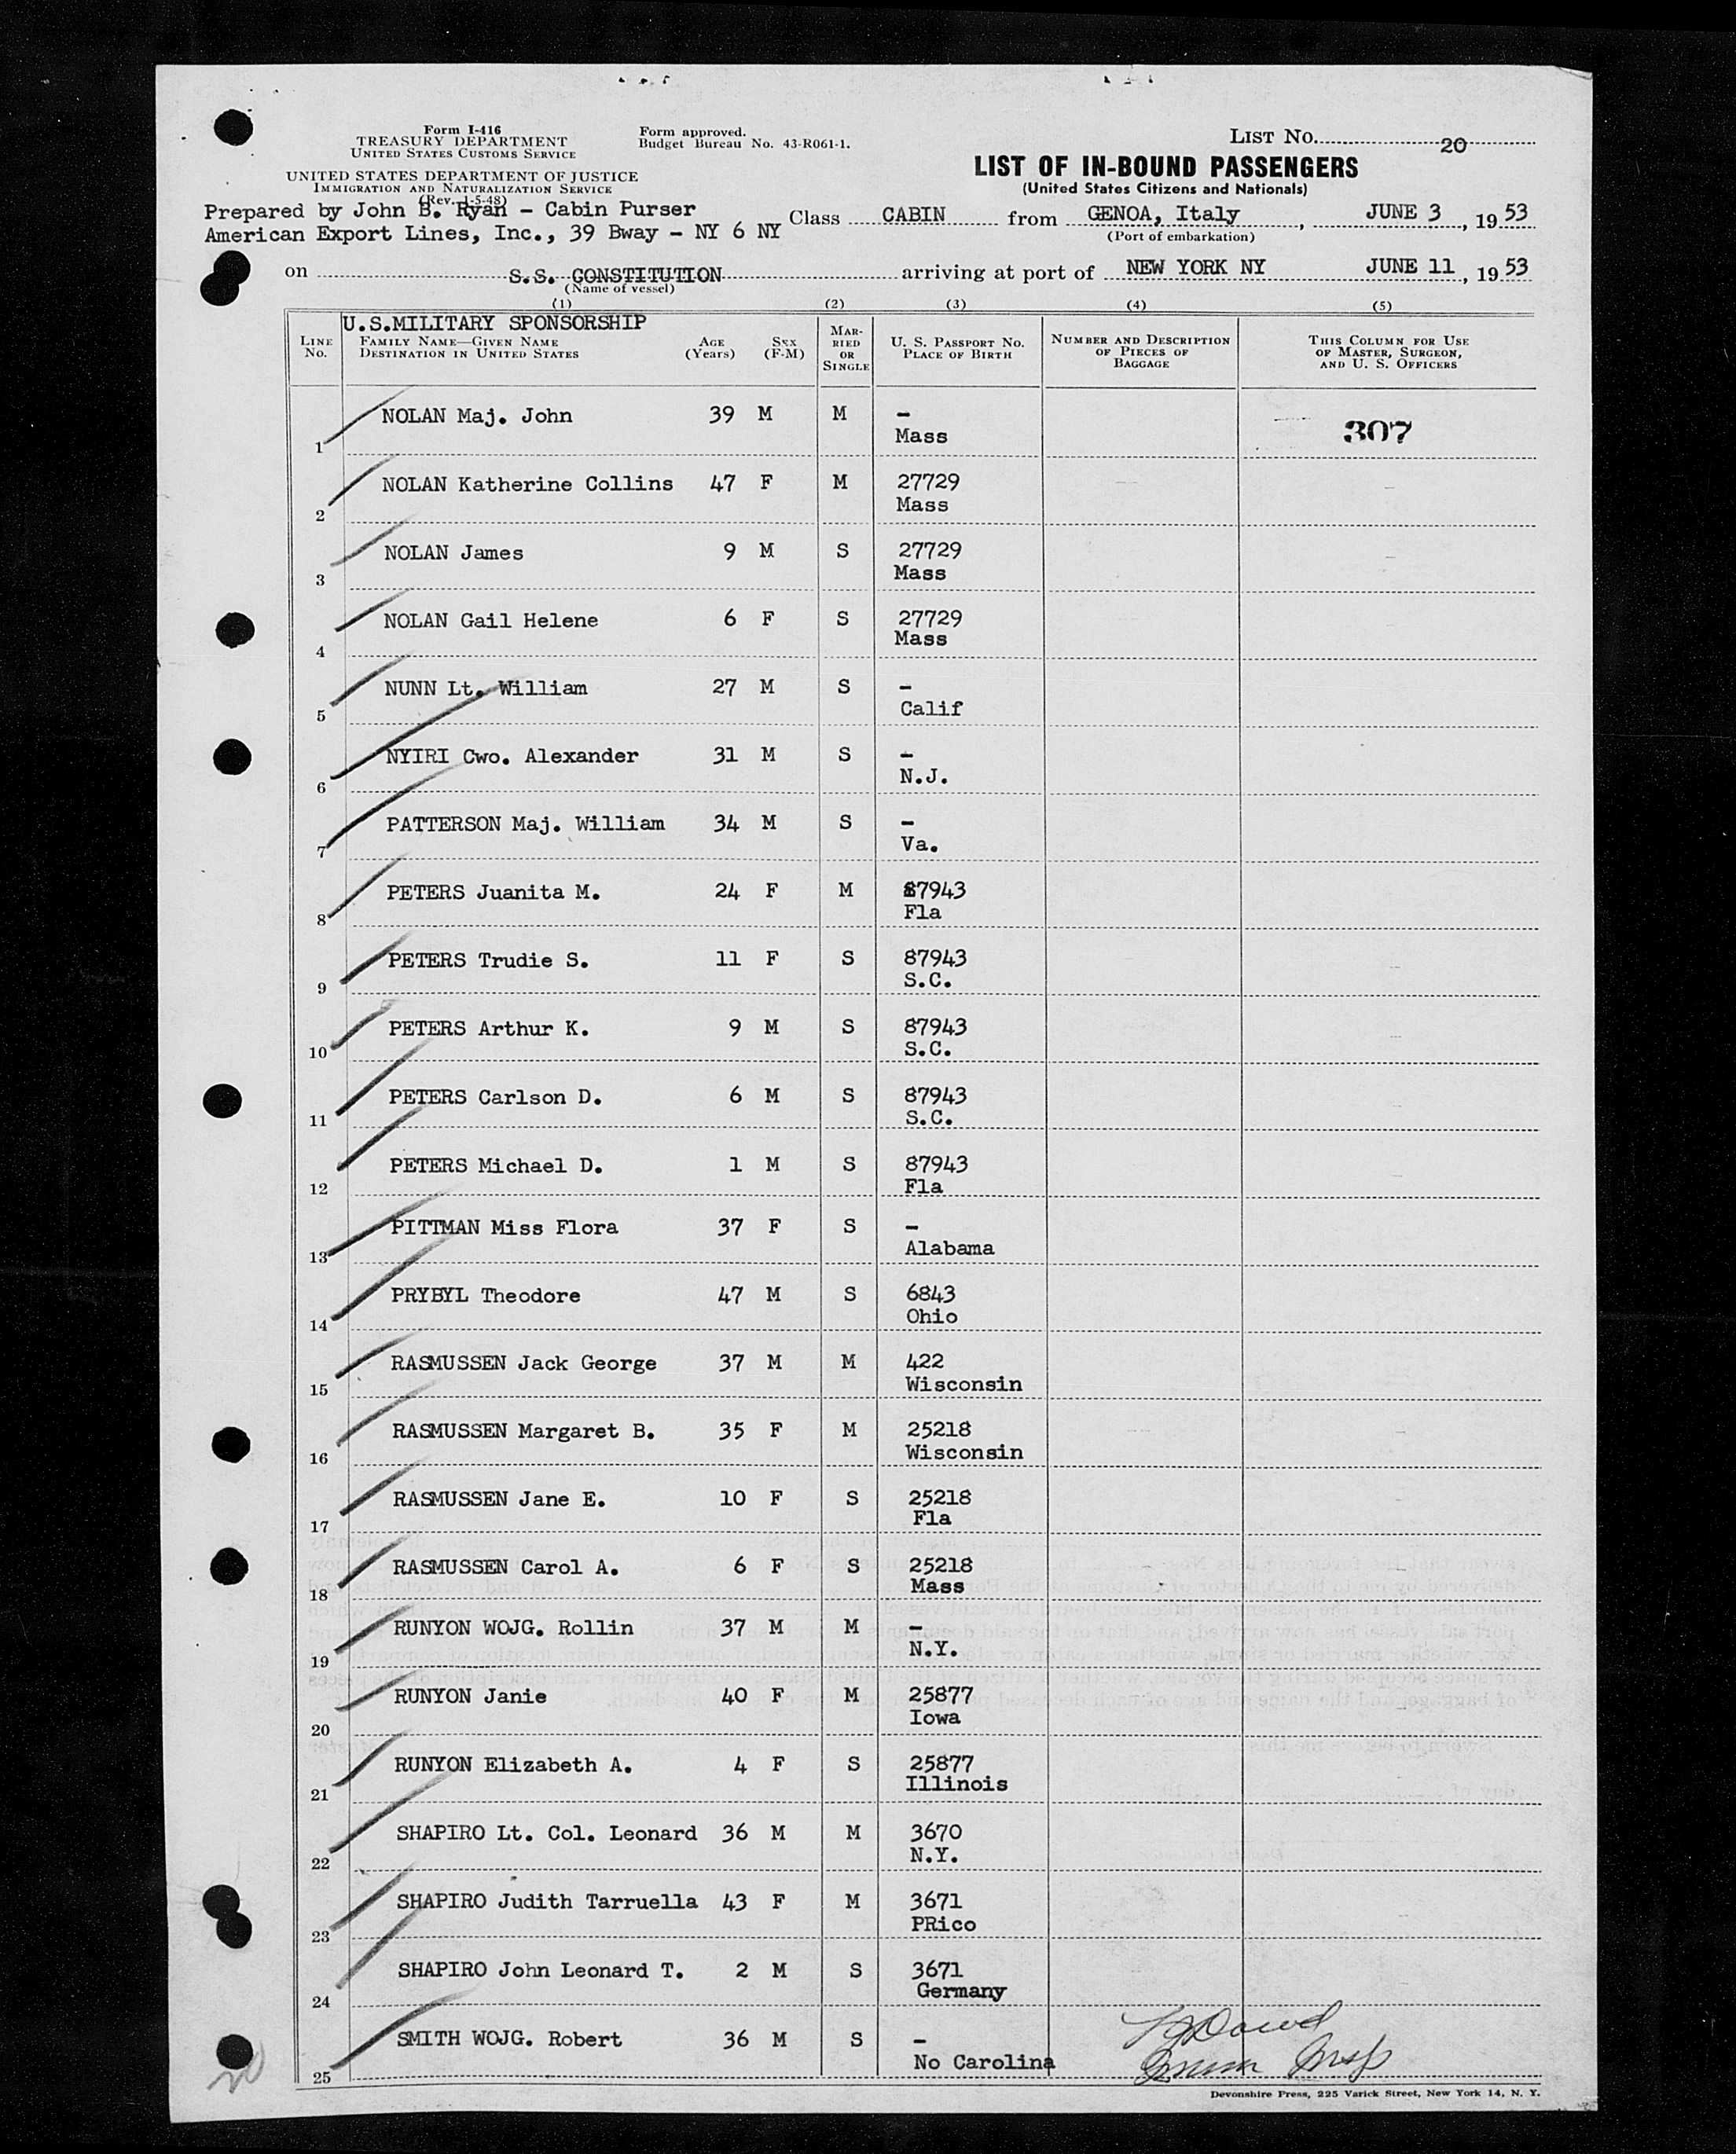 Form I-416
TREASURY DEPARTMENT
UNITED STATES CUSTOMS SERVICE
UNITED STATES DEPARTMENT OF JUSTICE
IMMIGRATION AND NATURALIZATION SERVICE
(Rev. 1-5-48)
Form approved.
Budget Bureau No. 43-R061-1.
LIST No. 20
LIST OF IN-BOUND PASSENGERS
(United States Citizens and Nationals)
Prepared by John B. Ryan - Cabin Purser
American Export Lines, Inc., 39 Bway - NY 6 NY
Class CABIN from GENOA, Italy, JUNE 3, 1953
(Port of embarkation)
on S.S. CONSTITUTION arriving at port of NEW YORK NY JUNE 11, 1953
(Name of vessel)
(1) (2) (3) (4) (5)
U.S.MILITARY SPONSORSHIP
LINE No. FAMILY NAME—GIVEN NAME DESTINATION IN UNITED STATES AGE (Years) SEX (F-M) MARRIED OR SINGLE U. S. PASSPORT No. PLACE OF BIRTH NUMBER AND DESCRIPTION OF PIECES OF BAGGAGE THIS COLUMN FOR USE OF MASTER, SURGEON, AND U. S. OFFICERS
1 NOLAN Maj. John 39 M M - 307
Mass
2 NOLAN Katherine Collins 47 F M 27729
Mass
3 NOLAN James 9 M S 27729
Mass
4 NOLAN Gail Helene 6 F S 27729
Mass
5 NUNN Lt. William 27 M S -
Calif
6 NYIRI Cwo. Alexander 31 M S -
N.J.
7 PATTERSON Maj. William 34 M S -
Va.
8 PETERS Juanita M. 24 F M 87943
Fla
9 PETERS Trudie S. 11 F S 87943
S.C.
10 PETERS Arthur K. 9 M S 87943
S.C.
11 PETERS Carlson D. 6 M S 87943
S.C.
12 PETERS Michael D. 1 M S 87943
Fla
13 PITTMAN Miss Flora 37 F S -
Alabama
14 PRYBYL Theodore 47 M S 6843
Ohio
15 RASMUSSEN Jack George 37 M M 422
Wisconsin
16 RASMUSSEN Margaret B. 35 F M 25218
Wisconsin
17 RASMUSSEN Jane E. 10 F S 25218
Fla
18 RASMUSSEN Carol A. 6 F S 25218
Mass
19 RUNYON WOJG. Rollin 37 M M -
N.Y.
20 RUNYON Janie 40 F M 25877
Iowa
21 RUNYON Elizabeth A. 4 F S 25877
Illinois
22 SHAPIRO Lt. Col. Leonard 36 M M 3670
N.Y.
23 SHAPIRO Judith Tarruella 43 F M 3671
PRico
24 SHAPIRO John Leonard T. 2 M S 3671
Germany
25 SMITH WOJG. Robert 36 M S -
No Carolina
20
Devonshire Press, 225 Varick Street, New York 14, N. Y.